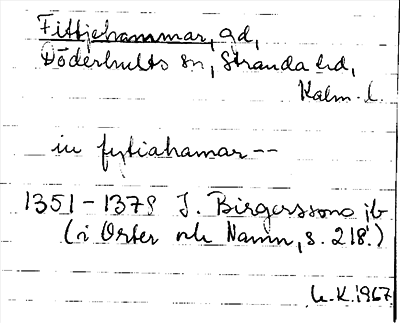 Fittjehammar, gd,
Döderhults sn, Stranda hd,
Kalm. l.
in fytiahamar --
1351-1379 J. Birgerssons jb
(i Orter och Namn, s. 218.)
U.K. 1967